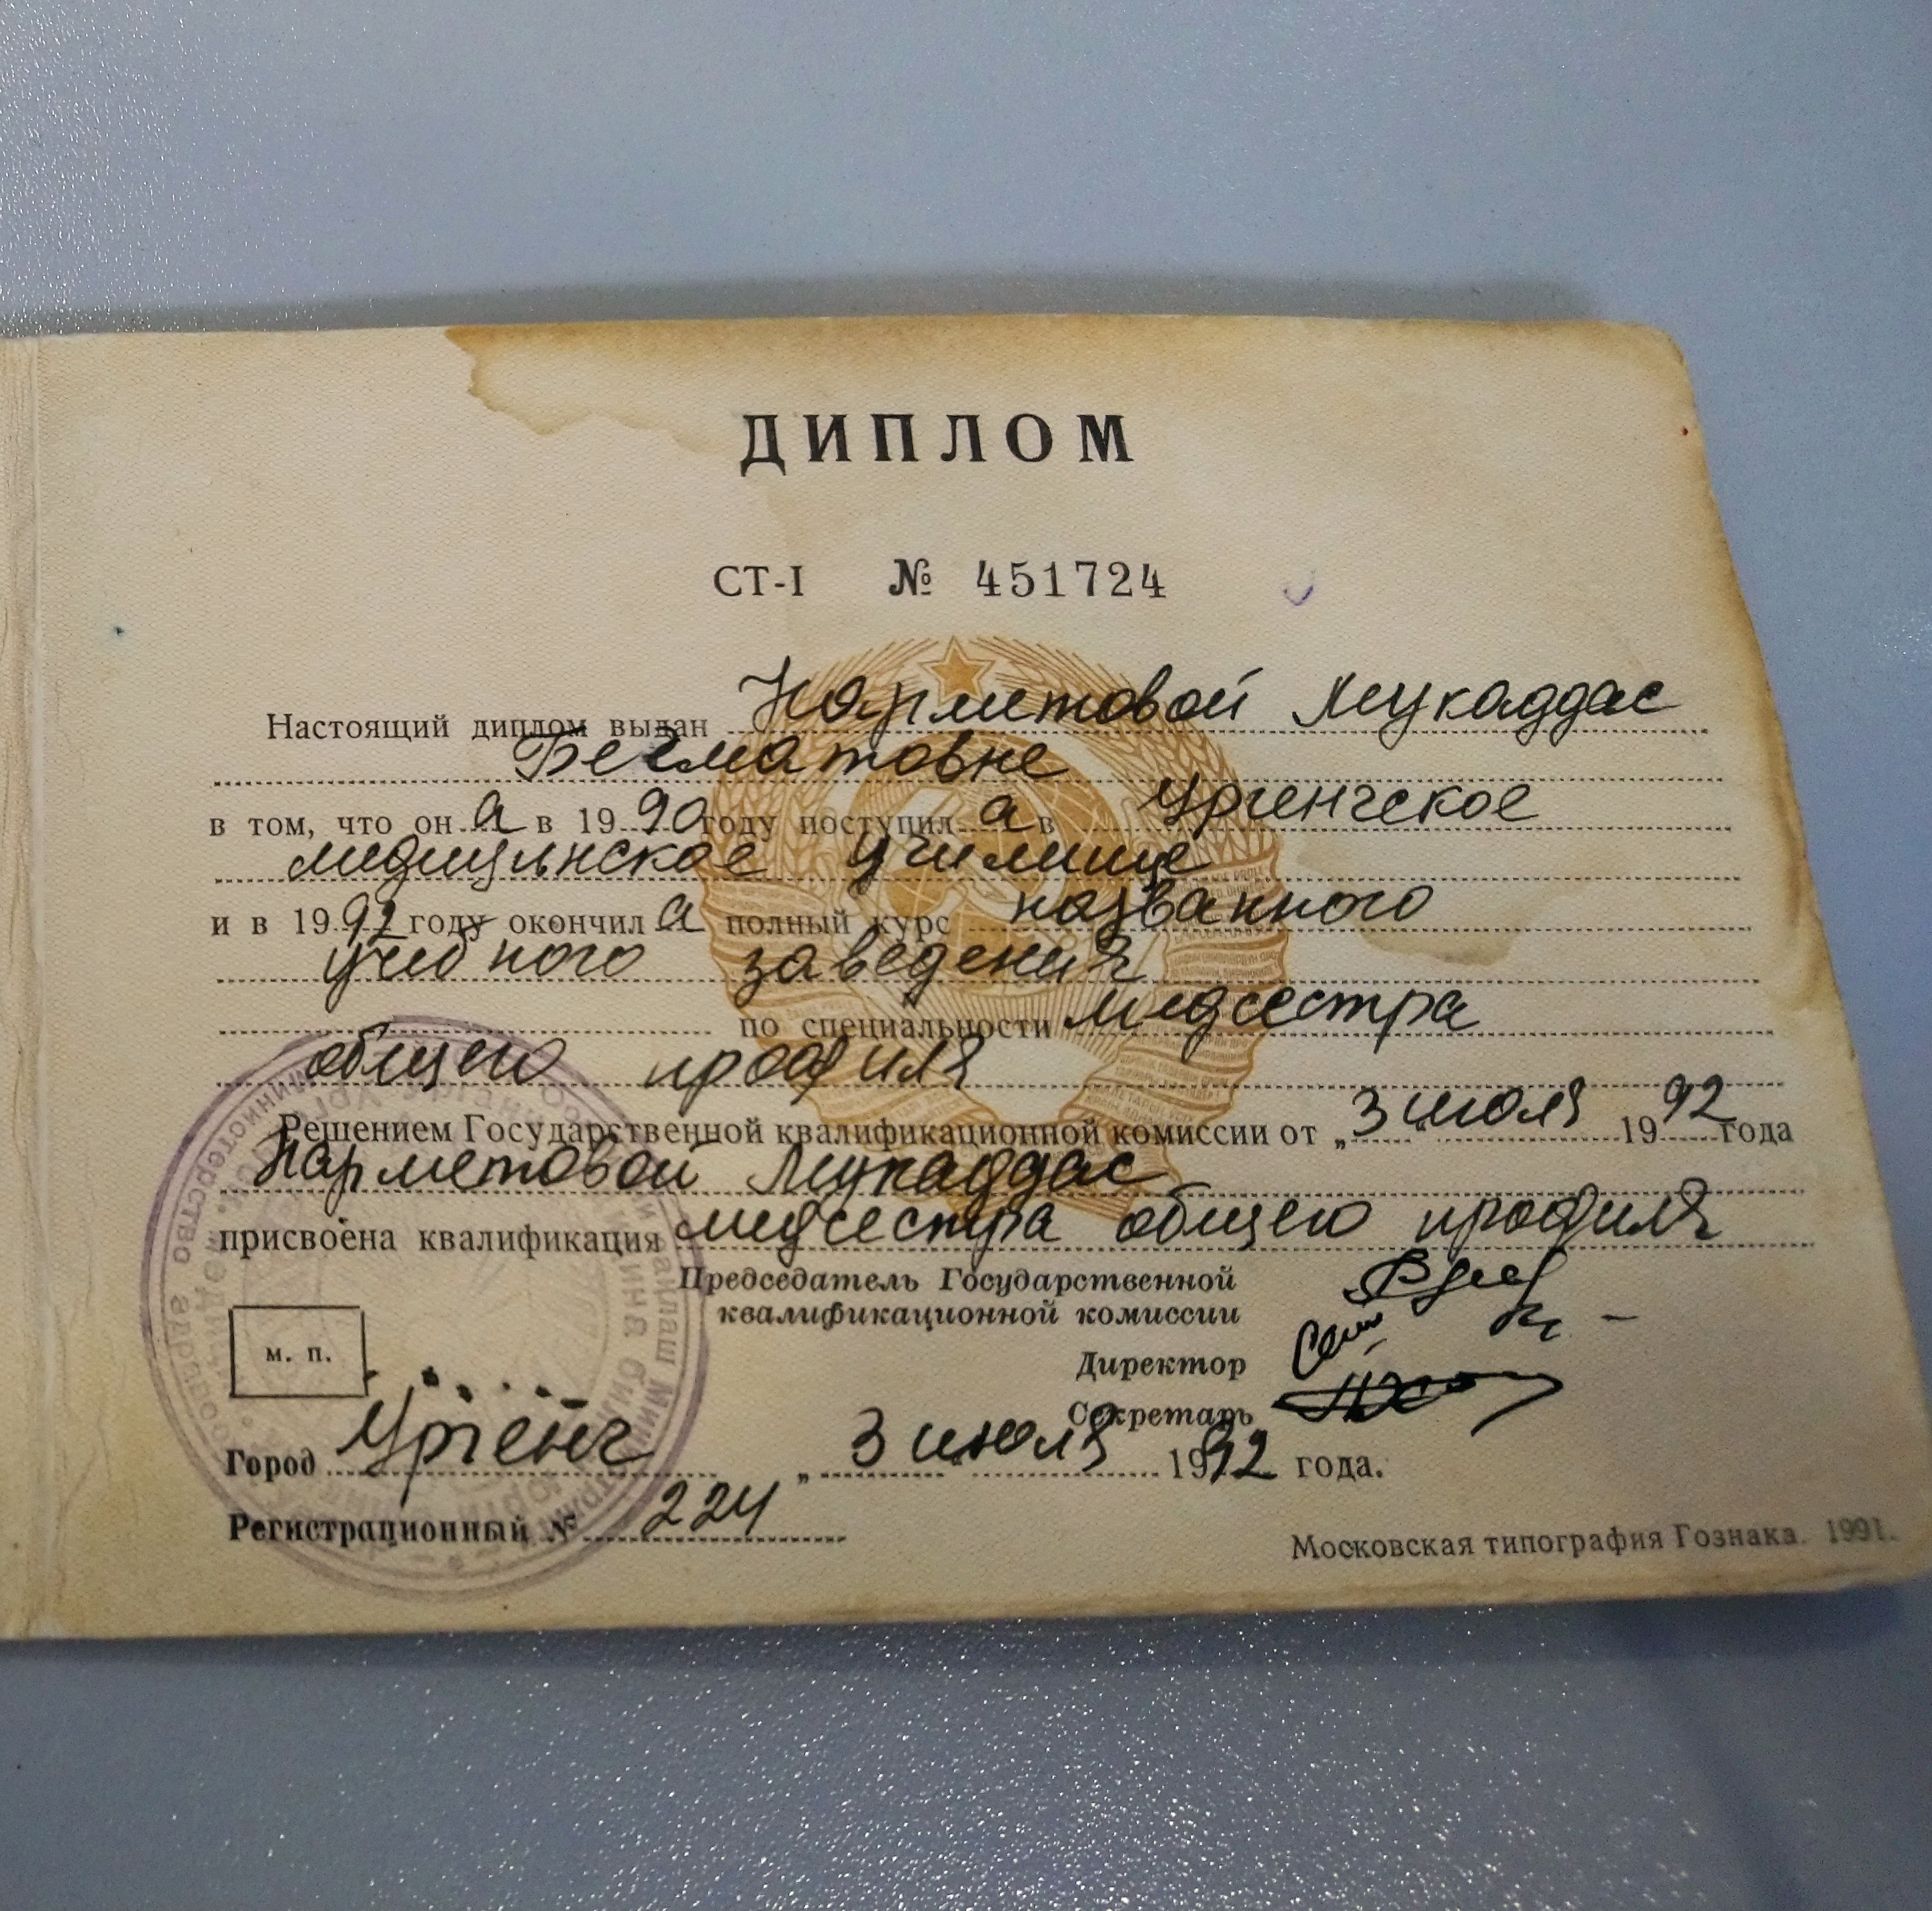 ДИПЛОМ
СТ-I № 451724
Настоящий диплом выдан Нарметовой Мукаддас
Бегматовне
в том, что он а в 1990 году поступил а в Ургенчское
медицинское училище
и в 1992 году окончил а полный курс названного
учебного заведения
по специальности медсестра
общего профиля
Решением Государственной квалификационной комиссии от „3" июля 1992 года
Нарметовой Мукаддас
присвоена квалификация медсестра общего профиля
Председатель Государственной
квалификационной комиссии
Директор
м. п.
Секретарь
Город Ургенч „3" июля 1992 года.
Регистрационный № 224
Московская типография Гознака. 1991.